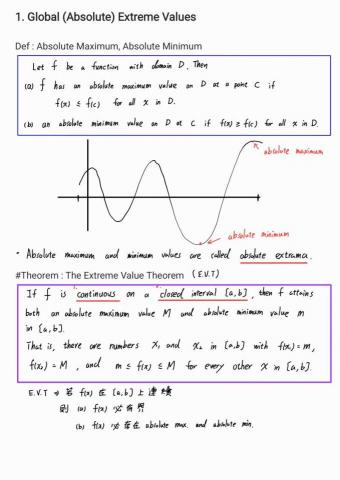 1. Global (Absolute) Extreme Values
Def : Absolute Maximum, Absolute Minimum
Let f be a function with domain D. Then
(a) f has an absolute maximum value on D at a point C if
f(x) ≤ f(c) for all x in D.
(b) an absolute minimum value on D at C if f(x) ≥ f(c) for all x in D.
absolute maximum
absolute minimum
• Absolute maximum and minimum values are called absolute extrama.
#Theorem : The Extreme Value Theorem (E.V.T)
If f is "continuous on a "closed interval [a,b], then f attains
both an absolute maximum value M and absolute minimum value m
in [a,b].
That is, there are numbers x₁ and x₂ in [a,b] with f(x₁) = m,
f(x₂) = M, and m ≤ f(x) ≤ M for every other x in [a,b].
E.V.T ⇒ 若 f(x) 在 [a,b] 上連續
則 (a) f(x) 必有界
(b) f(x) 必存在 absolute max. and absolute min.